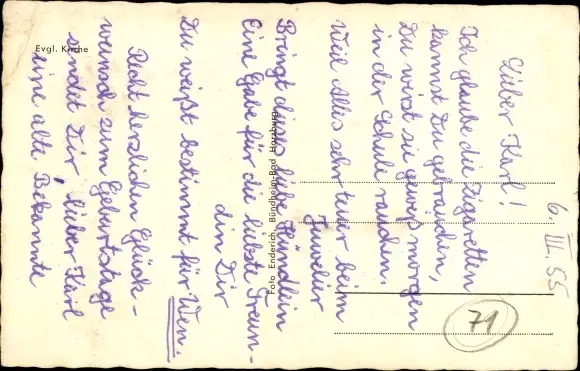 6. III. 55
Lieber Karl!
Ich glaube die Zigaretten
kannst Du gebrauchen,
Du wirst sie gewiß morgen
in der Schule rauchen.
Weil Alles sehr teuer beim
Juwelier
Bringt dieses liebe Hündlein
Eine Gabe für die liebste Freun-
din Dir
Du weißt bestimmt für Wen.
Recht herzlichen Glück-
wunsch zum Geburtstage
sendet Dir, lieber Karl
eine alte Bekannte
Evgl. Kirche
Foto Enderich, Bündheim-Bad Harzburg
71